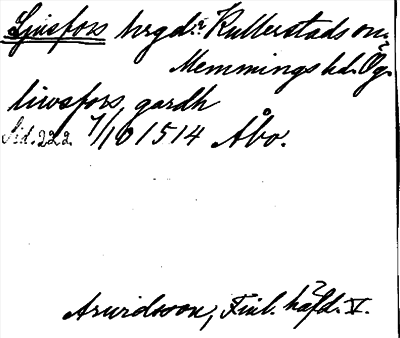 Ljusfors hrgd: Kullerstads sn.
Memmings hd. Ög.
liwsfors gardh
Sid. 222. 7/10 1514 Åbo.
Arwidsson, Finl. häfd. V.